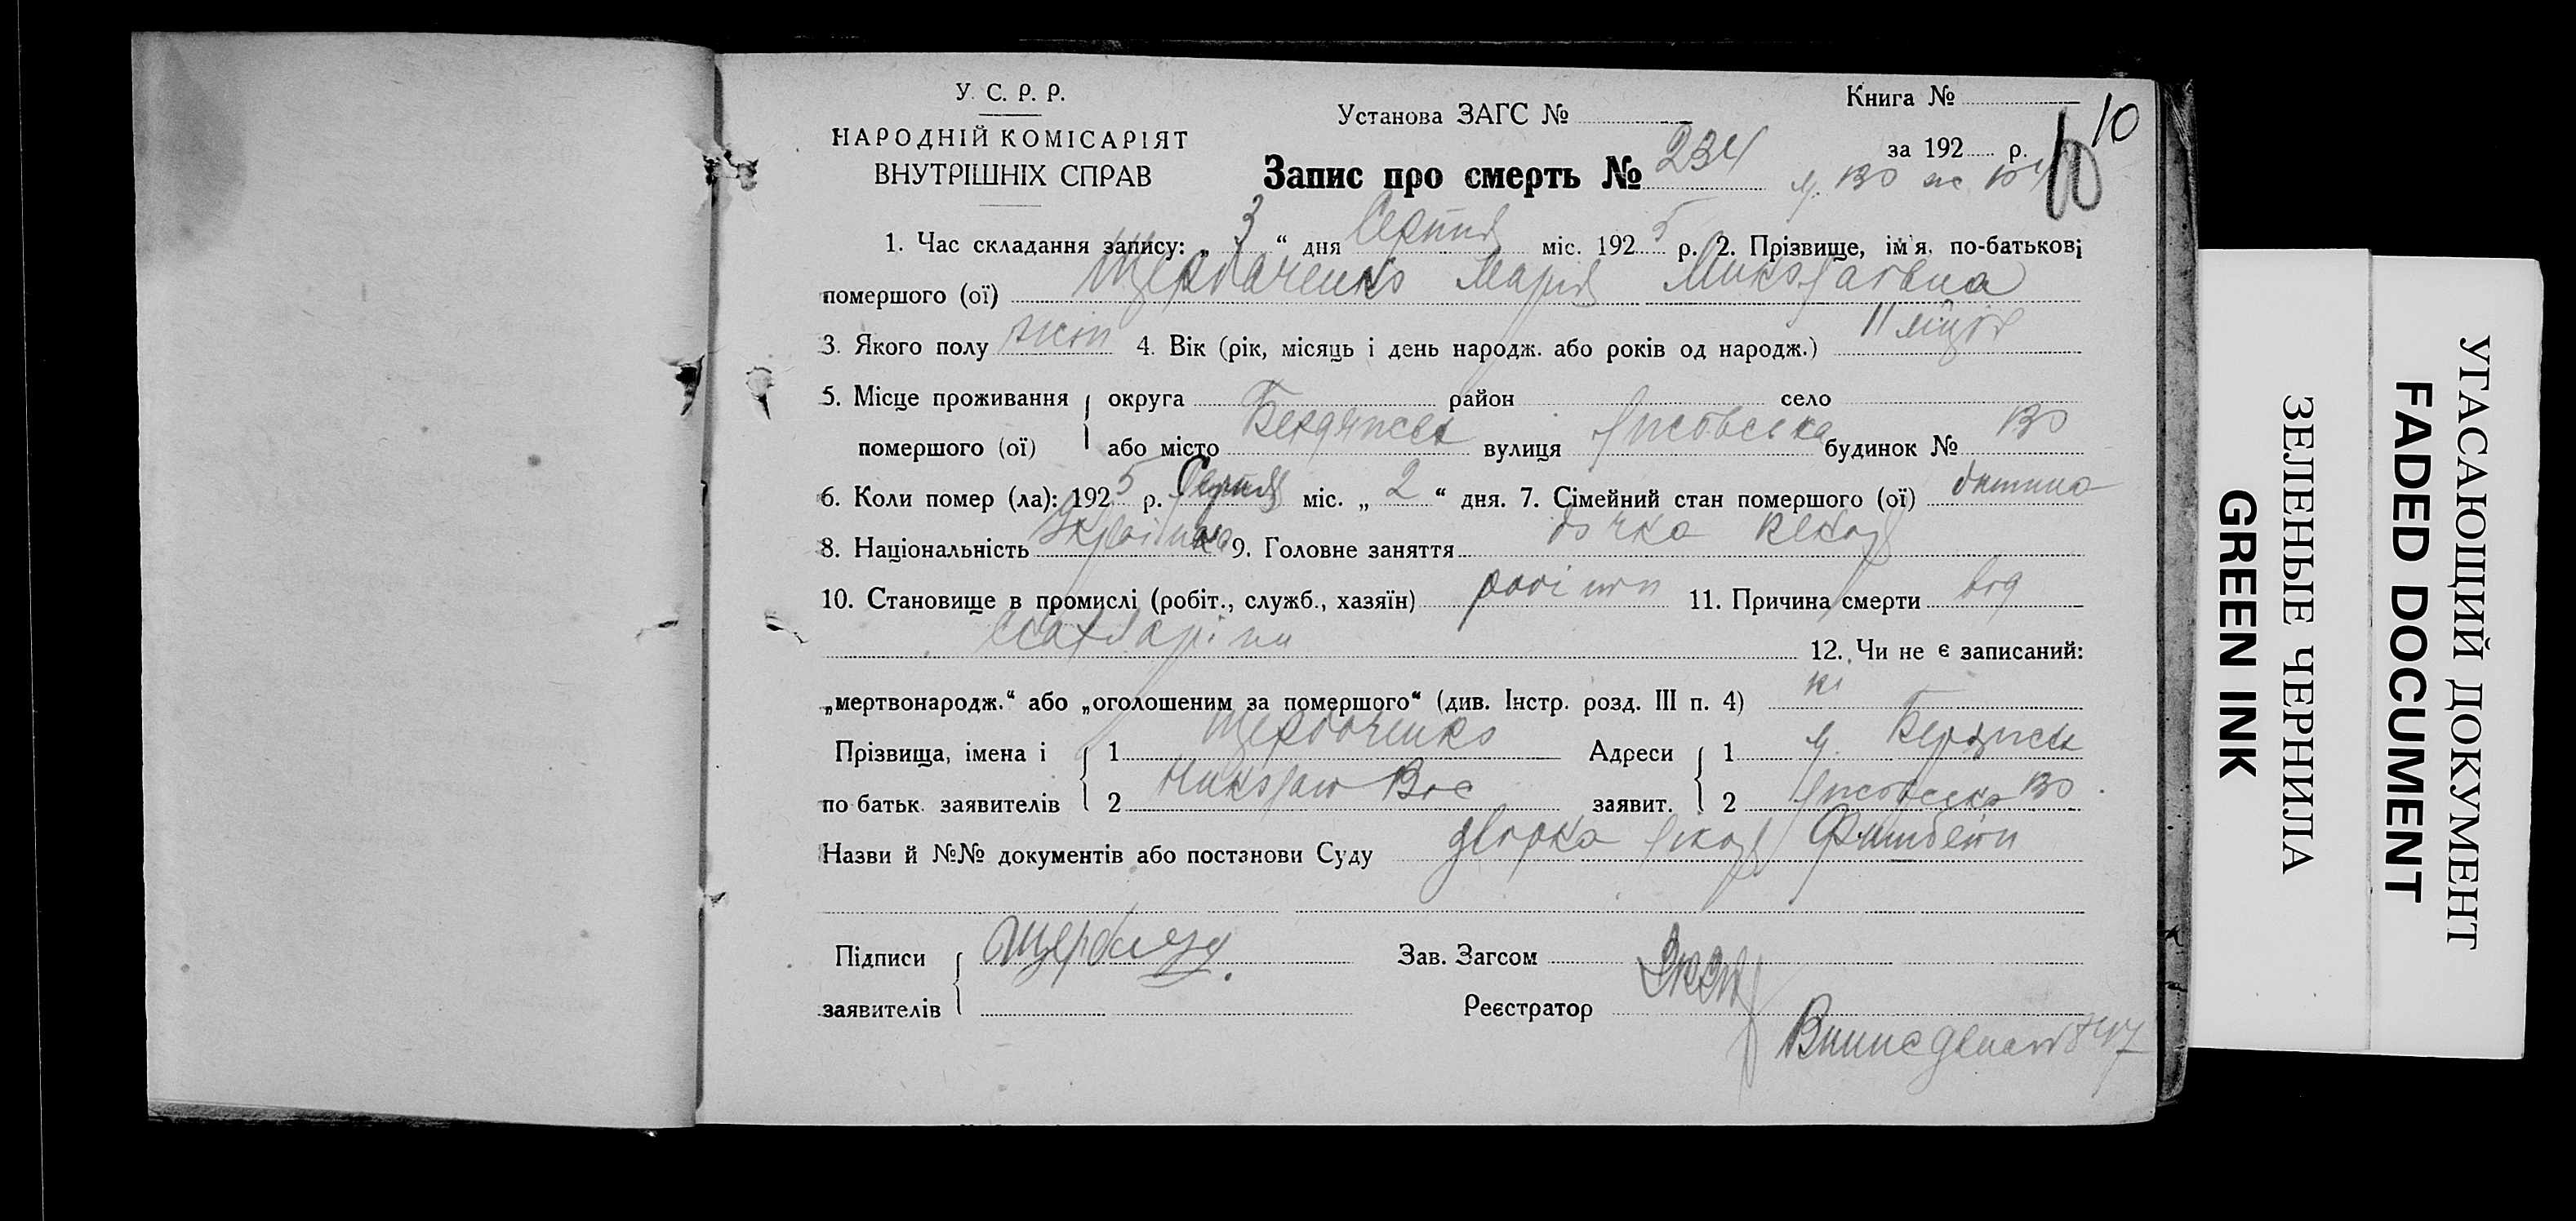 У. С. Р. Р.
НАРОДНІЙ КОМІСАРІЯТ
ВНУТРІШНІХ СПРАВ
Установа ЗАГС №
Книга №
за 192 р.
10
10
Запис про смерть № 234
1. Час складання запису: „ 3 “ дня Серпня міс. 1925 р. 2. Прізвище, ім'я, по-батькові
помершого (ої) Щербаченко Марія Миколаївна
3. Якого полу жін 4. Вік (рік, місяць і день народж. або років од народж.) 11 місяц
5. Місце проживання помершого (ої) округа район село
або місто Бердянськ вулиця Лисовська будинок № 130
6. Коли помер (ла): 1925 р. Серпня міс. „ 2 “ дня. 7. Сімейний стан помершого (ої) дитина
8. Національність Українка 9. Головне заняття дочка
10. Становище в промислі (робіт., служб., хазяїн) робітн 11. Причина смерти від
12. Чи не є записаний:
„мертвонародж.“ або „оголошеним за помершого“ (див. Інстр. розд. III п. 4) ні
Прізвища, імена і по батьк. заявителів 1 Щербаченко
2 Миколай Вас
Адреси заявит. 1 м. Бердянськ
2 Лисовська 130
Назви й №№ документів або постанови Суду довідка лікаря
Підписи заявителів
Зав. Загсом
Реєстратор
УГАСАЮЩИЙ ДОКУМЕНТ
FADED DOCUMENT
ЗЕЛЕНЫЕ ЧЕРНИЛА
GREEN INK